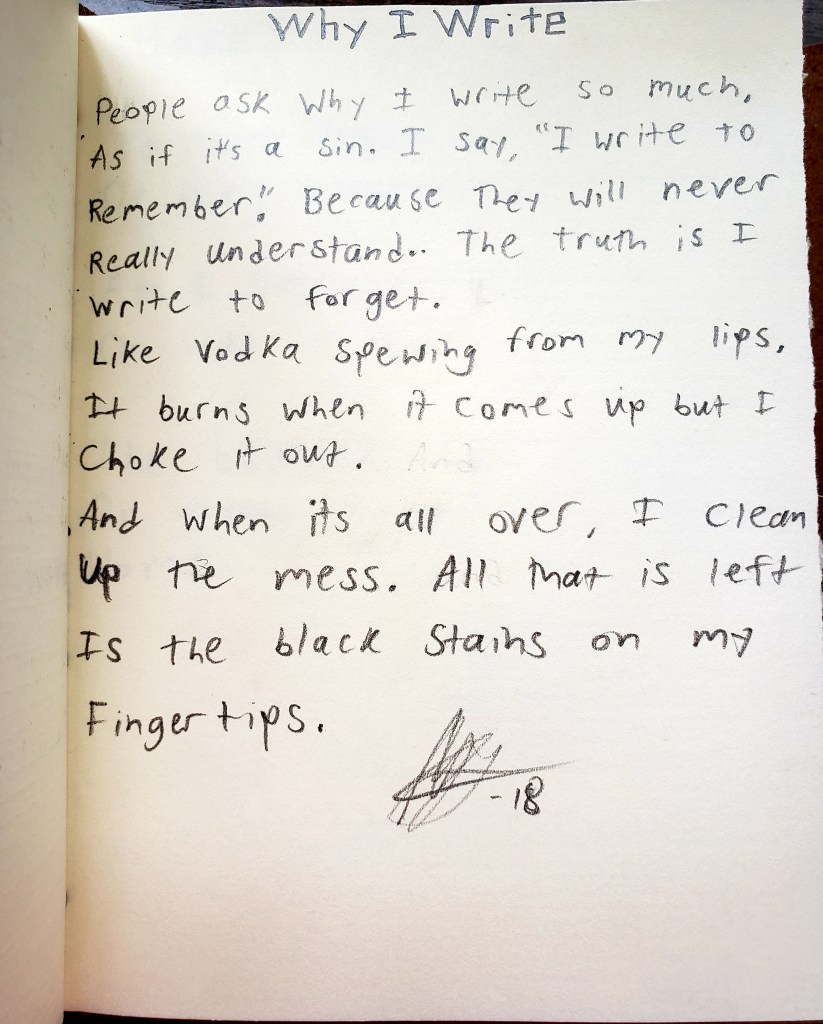 Why I Write
People ask Why I write so much,
As if it's a sin. I say, "I write to
Remember." Because They will never
Really understand.. The truth is I
write to forget.
Like Vodka Spewing from my lips,
It burns when it comes up but I
Choke it out. And
And when its all over, I Clean
Up the mess. All that is left
Is the black Stains on my
Fingertips.
-18